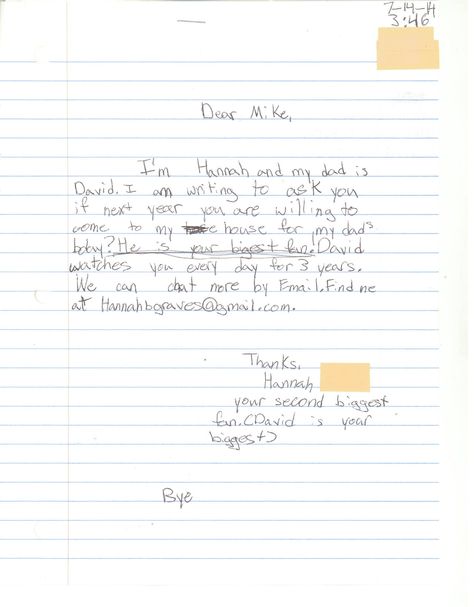 7-14-14
3:46
Dear Mike,
I'm Hannah and my dad is
David. I am writing to ask you
if next year you are willing to
come to my house for my dad's
bday? He is your bigest fan. David
watches you every day for 3 years.
We can chat more by Email. Find me
at Hannahbgraves@gmail.com.
Thanks,
Hannah
your second biggest
fan. (David is your
biggest)
Bye